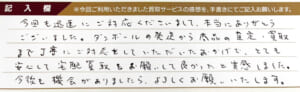 記入欄
※今回ご利用いただきました買取サービスの感想を、手書きにてご記入お願いします。
今回も迅速にご対応くださいまして、本当にありがとう
ございました。ダンボールの発送から商品の査定・買取
まで丁寧にご対応をしていただいたおかげで、とても
安心して宅配買取をお願いして良かったと実感しました。
今後も機会がありましたら、よろしくお願いいたします。